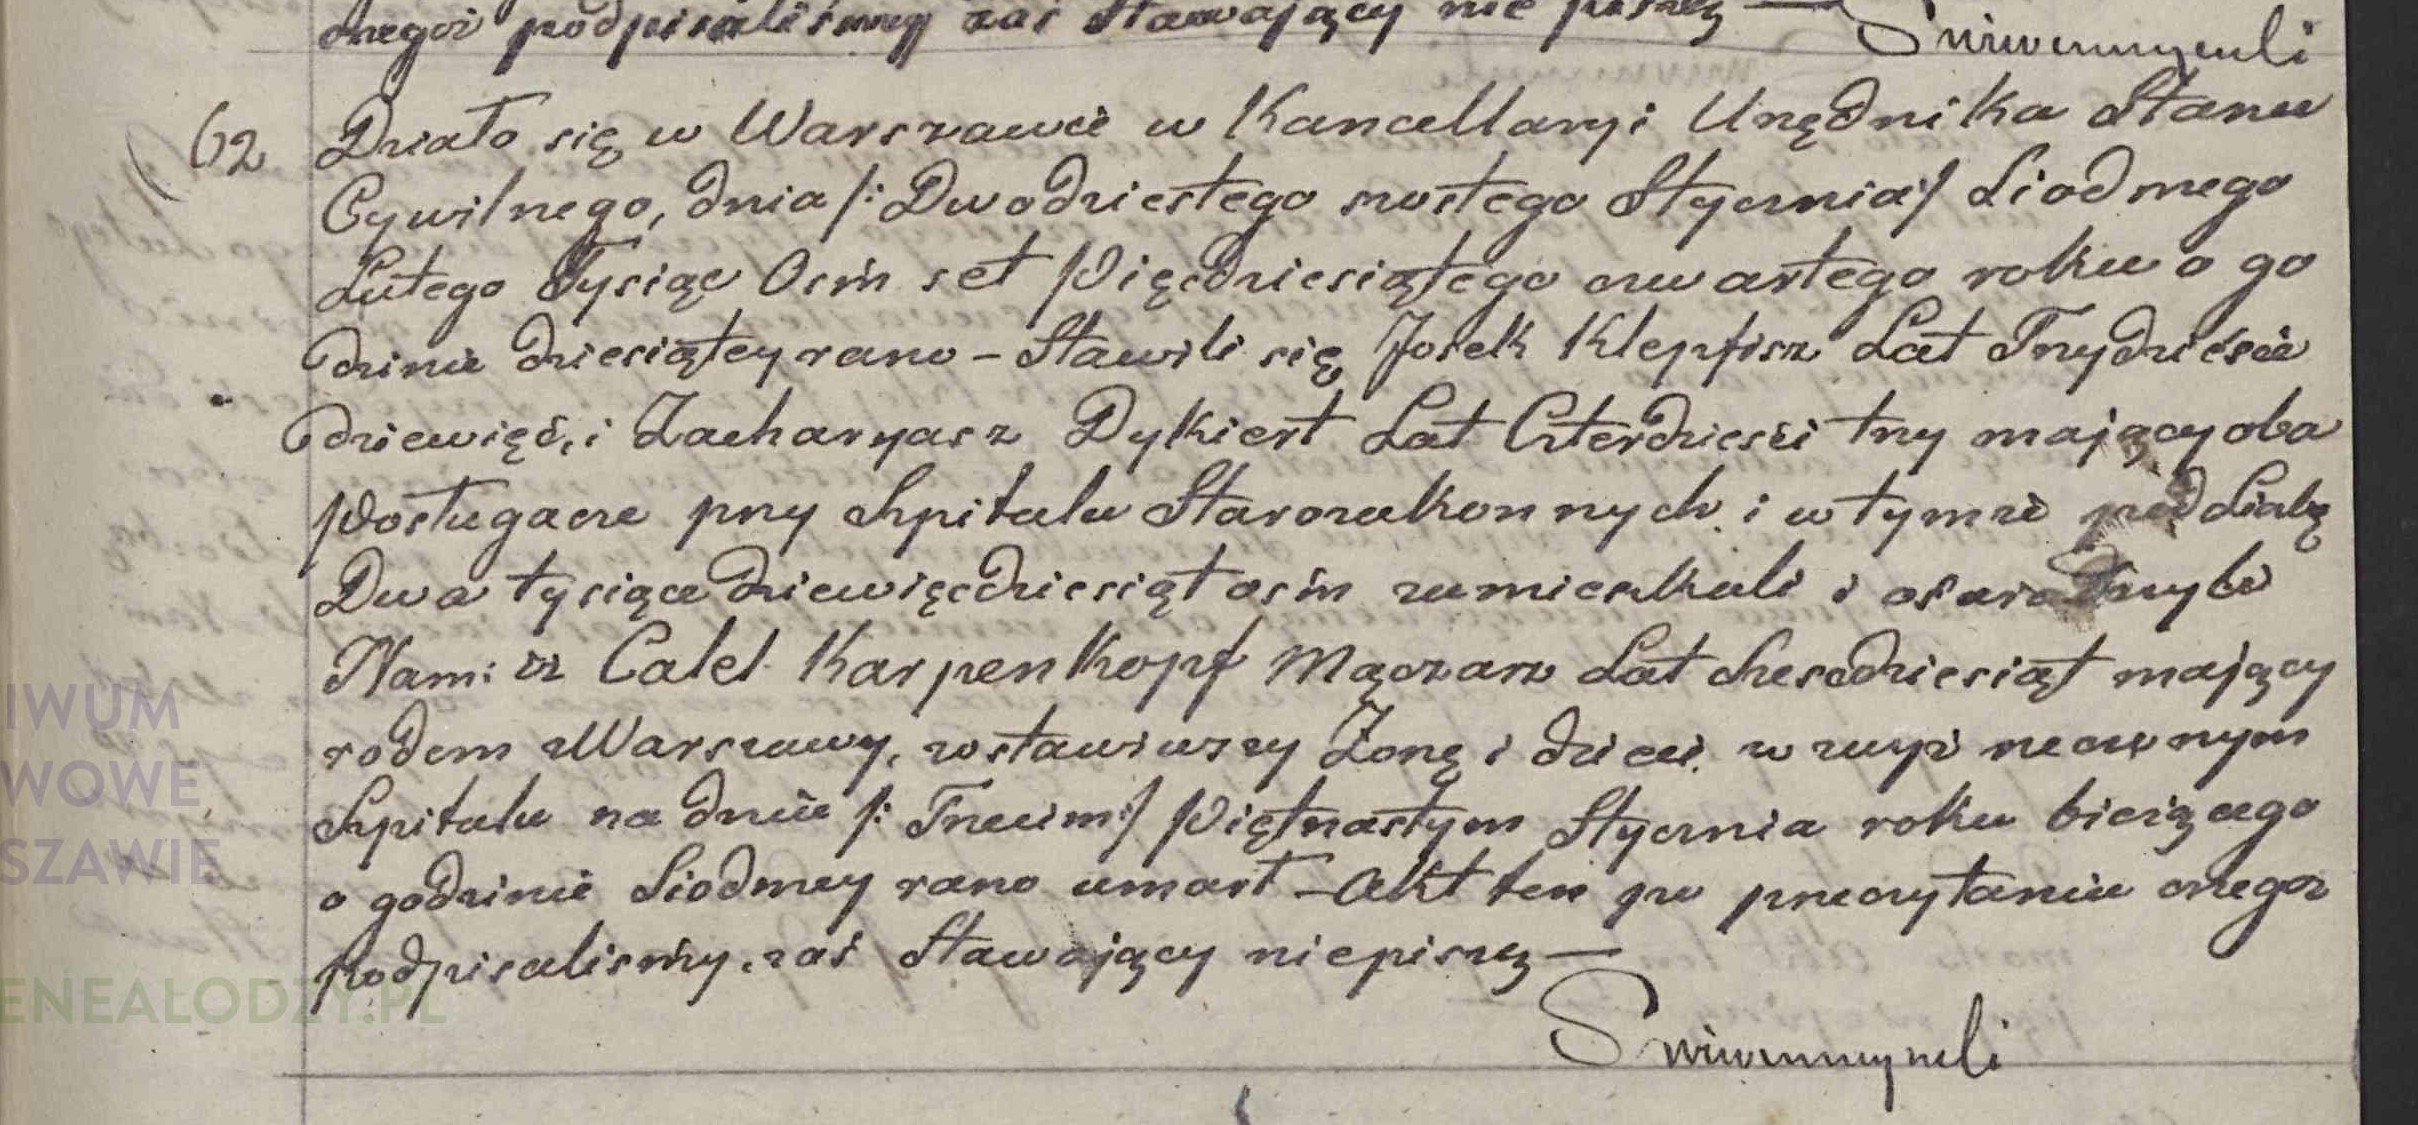 onegoż podpisaliśmy zaś Stawający nie piszą —
62 Działo się w Warszawie w Kancellaryi Urzędnika Stanu
Cywilnego, dnia /: Dwodziestego szostego Stycznia :/ Siodmego
Lutego Tysiąc Ośm set Pięcdziesiątego czwartego roku o go
dzinie dziesiątey rano – Stawili się Josek Klepfisz Lat Trzydzieście
dziewięć, i Zacharyasz Dykiert Lat Czterdzieści trzy mający oba
Posługacze przy Szpitalu Starozakonnych i w tymże pod Liczbą
Dwa tysiące dziewięcdziesiąt ośm zamieszkali i oświadczyli
Nam: iż Calel Karpenkopf Mączarz Lat Szescdziesiąt mający
rodem z Warszawy, zostawiwszy Żonę i dzieci w wyżi rzeczonym
Szpitalu na dniu /: Trzecim :/ Piętnastym Stycznia roku bieżącego
o godzinie Siodmey rano umarł – Akt ten po przeczytaniu onegoż
podpisalismy, zaś Stawający niepiszą —
IWUM
WOWE
SZAWIE
ENEALODZY.PL